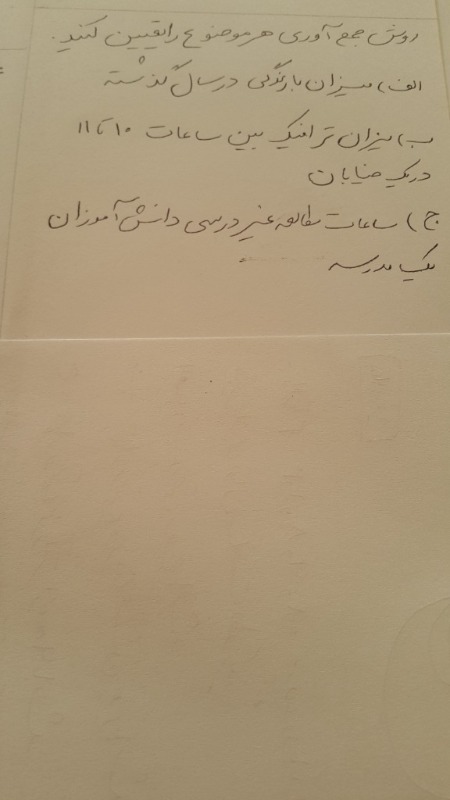 روش جمع آوری هر موضوع را تعیین کنید.
الف) میزان بارندگی در سال گذشته
ب) میزان ترافیک بین ساعات ۱۰ تا ۱۱
در یک خیابان
ج) ساعات مطالعه غیر درسی دانش آموزان
یک مدرسه